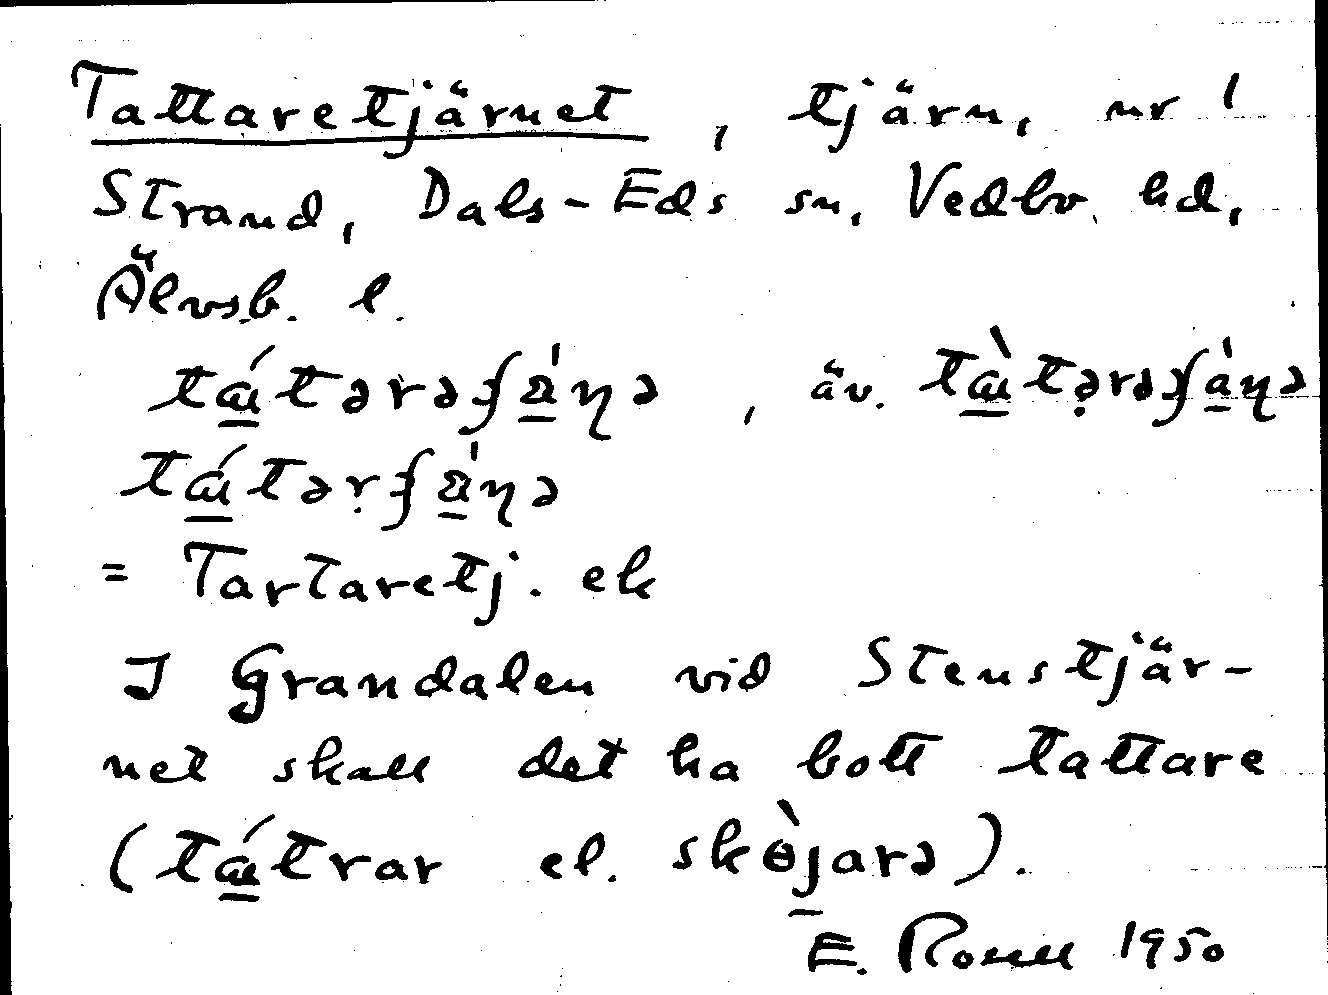 Tattaretjärnet, tjärn, nr 1
Strand, Dals-Eds sn, Vedbo hd,
Älvsb. l.
tá̱tərəʃá̱ŋə, äv. tà̱tərəʃà̱ŋə
tá̱tərʃá̱ŋə
= Tartaretj. ek
I Grandalen vid Stenstjär-
net skall det ha bott tattare
(tá̱trar el. skɵ̀jarə).
E. Rosell 1950